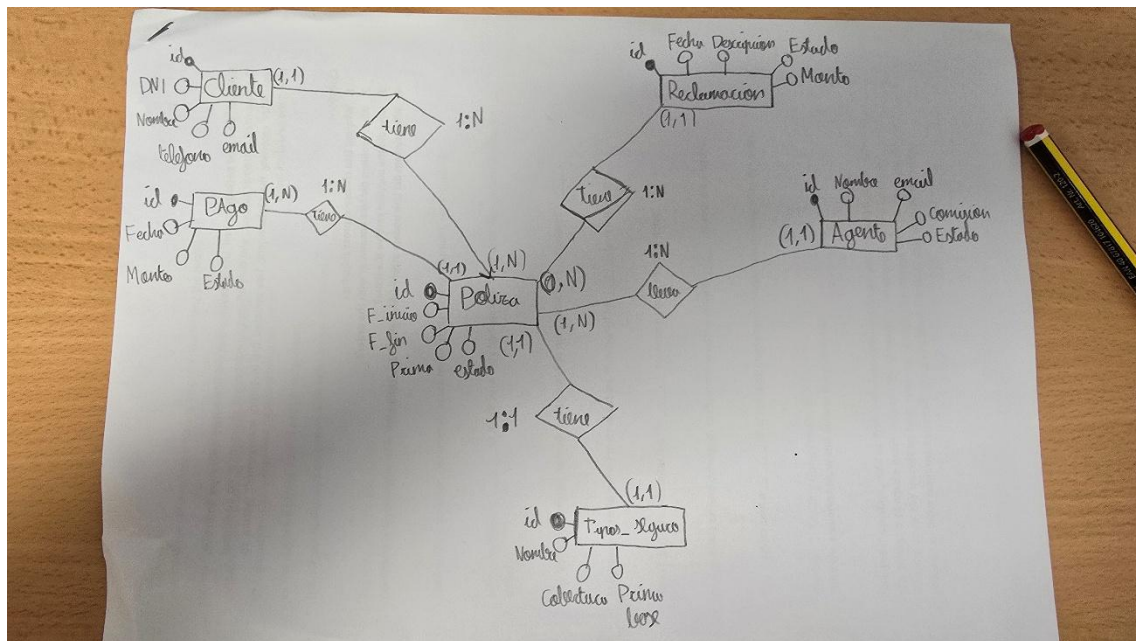 id
DNI
Cliente
(1,1)
Nombre
telefono
email
tiene
1:N
id
Fecha
Descripcion
Estado
Monto
Reclamacion
(1,1)
tiene
1:N
id
PAgo
(1,N)
1:N
tiene
Fecha
Monto
Estado
(1,1)
id
Nombre
email
Comision
Estado
Agente
(1,1)
1:N
lleva
(1,N)
(0,N)
(1,N)
id
Poliza
F_inicio
F_fin
Prima
estado
(1,1)
1:1
tiene
(1,1)
id
Tipos_seguro
Nombre
Cobertura
Prima
base